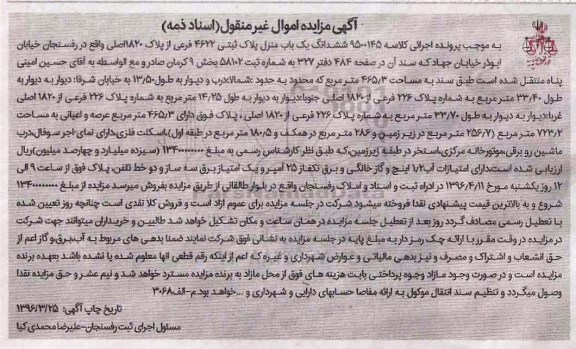 آگهی مزایده اموال غیرمنقول(اسناد ذمه)
به موجب پرونده اجرائی کلاسه ۹۵۰۰۱۴۵ ششدانگ یک باب منزل پلاک ثبتی ۴۶۲۲ فرعی از پلاک ۱۸۲۰اصلی واقع در رفسنجان خیابان
ابوذر خیابان جهاد که سند آن در صفحه ۴۸۴ دفتر ۳۲۷ به شماره ثبت ۵۸۱۰۲ بخش ۹ کرمان صادر و مع الواسطه به آقای حسین امینی
پناه منتقل شده است طبق سند به مساحت ۴۶۵/۳ متر مربع که محدود به حدود :شمالا:درب و دیوار به طول۱۳/۵۰ به خیابان شرقا: دیوار به دیوار به
طول ۳۳/۴۰ متر مربع به شماره پلاک ۲۲۶ فرعی از ۱۸۲۰ اصلی جنوبا:دیوار به دیوار به طول ۱۴/۲۵ متر مربع به شماره پلاک ۲۲۶ فرعی از ۱۸۲۰ اصلی
غربا:دیوار به دیوار به طول ۳۳/۷۰ متر مربع به شماره پلاک ۲۲۶ فرعی از ۱۸۲۰ اصلی ، پلاک فوق دارای ۴۶۵/۳ متر مربع عرصه و اعیانی به مساحت
۷۲۳/۲ متر مربع (۲۵۶/۷ متر مربع در زیر زمین و ۲۸۶ متر مربع در همکف و ۱۸۰/۵ متر مربع در طبقه اول)،اسکلت فلزی،دارای نمای اجر سوفال،درب
ماشین رو برقی،موتورخانه مرکزی،استخر در طبقه زیرزمین،که طبق نظر کارشناس رسمی به مبلغ ۱۳۴۰۰۰۰۰۰۰۰ (سیزده میلیارد و چهارصد میلیون)ریال
ارزیابی شده است،دارای امتیازات آب۱/۲ اینچ و گاز خانگی و برق تکفاز ۲۵ آمپر و یک امتیاز برق سه ساز و دو خط تلفن، پلاک فوق از ساعت ۹ الی
۱۲ روز یکشنبه مورخ ۱۳۹۶/۴/۱۱ در اداره ثبت و اسناد و املاک رفسنجان واقع در بلوار طالقانی از طریق مزایده بفروش میرسد مزایده از مبلغ ۱۳۴۰۰۰۰۰۰۰۰
شروع و به بالاترین قیمت پیشنهادی نقدا فروخته میشود شرکت در جلسه مزایده برای عموم آزاد است و فروش کلا نقدی است چنانچه روز تعیین شده
با تعطیل رسمی مصادف گردد روز بعد از تعطیل جلسه مزایده در همان ساعت و مکان تشکیل خواهد شد طالبین و خریداران میتوانند جهت شرکت
در مزایده در وقت مقرر با ارائه چک رمز دار به مبلغ پایه در جلسه مزایده به نشانی فوق شرکت نمایند ضمنا بدهی های مربوط به آب،برق و گاز اعم از
حق انشعاب و اشتراک و مصرف و نیز بدهی مالیاتی و عوارض شهرداری و غیره که اعم از اینکه رقم قطعی انها معلوم شده یا نشده باشد بعهده برنده
مزایده است و در صورت وجود مازاد وجوه پرداختی بابت هزینه های فوق از محل مازاد به برنده مزایده مسترد خواهد شد و نیم عشر و حق مزایده نقدا
وصول میگردد و تنظیم سند انتقال موکول به ارائه مفاصا حسابهای دارایی و شهرداری و ...خواهد بود.م-الف۳۰۶۸
تاریخ چاپ آگهی: ۱۳۹۶/۳/۲۵
مسئول اجرای ثبت رفسنجان-علیرضا محمدی کیا